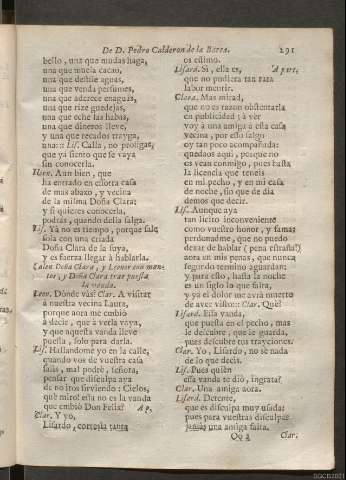 De D. Pedro Calderon de la Barca. 291
bello, una que mudas haga,
una que muela cacao,
una que destile aguas,
una que venda perfumes,
una que aderece enaguas,
una que rize guedejas,
una que eche las habas,
una que dineros lleve,
y una que recados trayga,
una:: Lis. Calla, no prosigas,
que ya siento que se vaya
sin conocerla.
Hern. Aun bien, que
ha entrado en essotra casa
de mas abaxo, y vecina
de la misma Doña Clara;
y si quieres conocerla,
podràs, quando della salga.
Lis. Yà no es tiempo, porque sale
sola con una criada
Doña Clara de la suya,
y es fuerza llegar à hablarla.
Salen Doña Clara, y Leonor con mantos,
y Doña Clara trae puesta
la vanda.
Leon. Dònde vàs? Clar. A visitar
à nuestra vecina Laura,
porque aora me embiò
à decir, que à verla vaya,
y que aquesta vanda lleve
puesta, solo para darla.
Lis. Hallandome yo en la calle,
quando vos de vuestra casa
salis, mal podrè, señora,
pensar que disculpa aya
de no iros sirviendo: Cielos,
què miro! esta no es la vanda
que embiò Don Felix? Ap.
Clar. Y yo,
Lisardo, cortesìa tanta
os estimo.
Lisard. Si, ella es, Apart.
que no pudiera tan rara
labor mentir.
Clara. Mas mirad,
que no es razon obstentarla
en publicidad; à vèr
voy à una amiga à esta casa
vecina, por esso salgo
oy tan poco acompañada:
quedaos aqui, porque no
os vean conmigo, pues basta
la licencia que teneis
en mi pecho, y en mi casa
de noche, sin que de dia
demos que decir.
Lis. Aunque aya
tan licito inconveniente
como vuestro honor, y famas
perdonadme, que no puedo
dexar de hablar (pena estraña!)
aora en mis penas, que nunca
segundo termino aguardan;
y para esso, hasta la noche
es un siglo lo que falta,
y ya el dolor me avrà muerto
de aver visto::: Clar. Què?
Lisard. Essa vanda,
que puesta en el pecho, mas
le descubre, que le guarda,
pues descubre tus trayciones.
Clar. Yo, Lisardo, no sè nada
de lo que decis.
Lis. Pues quièn
essa vanda te diò, ingrata?
Clar. Una amiga aora.
Lisard. Detente,
que es disculpa muy usada;
pues para vuestras disculpas
jamàs una amiga falta.
Oo 2 Clar.